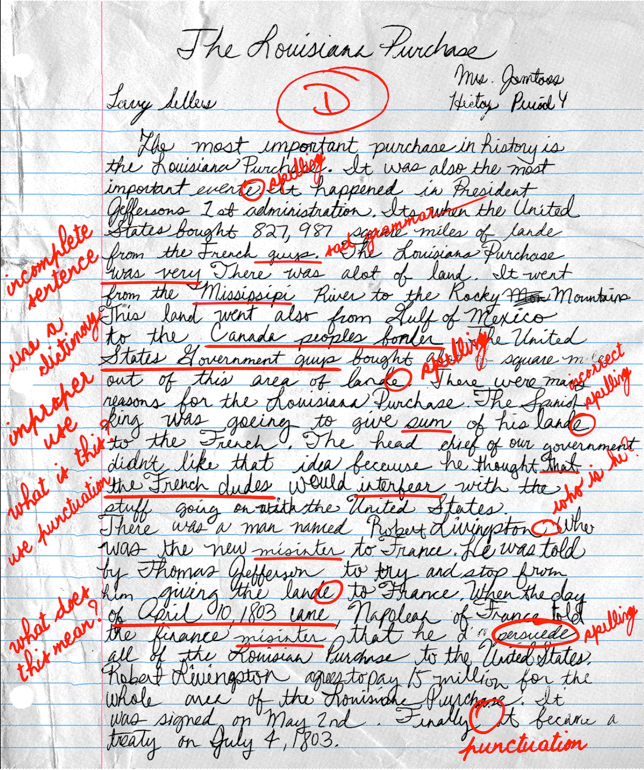 The Louisiana Purchase
Mrs. Jamtoss
Larry Sellers
D
History Period 4
The most important purchase in history is
the Louisiana Purchase. It was also the most
spelling
important evente It happened in President
Jeffersons 1st administration. Its when the United
bad grammar
States bought 827,987 square miles of lande
from the French guys. The Louisiana Purchase
incomplete sentence
was very There was alot of land. It went
from the Mississipi River to the Rocky Mountains
This land went also from Gulf of Mexico
use a dictionary
to the Canada peoples border the United
spelling
States Government guys bought square
out of this area of lande There were
incorrect spelling
reasons for the Louisiana Purchase. The Spanish
improper use
king was goeing to give sum of his lande
to the French. The head chief of our government
what is this?
didn't like that idea because he thought that
the French dudes would interfear with the
who is he?
use punctuation
stuff going on with the United States.
There was a man named Robert Livingston Who
was the new misinter to France. He was told
by Thomas Jefferson to try and stop from
him giving the lande to France. When the day
what does this mean?
of April 10, 1803 came, Naplean of France told
the finance misinter that he persuede
spelling
all of the Louisian Purchase to the United States.
Robert Livingston agrees to pay 15 million for the
whole area of the Louisiane Purchase. It
was signed on May 2nd. Finally It became a
treaty on July 4, 1803.
punctuation